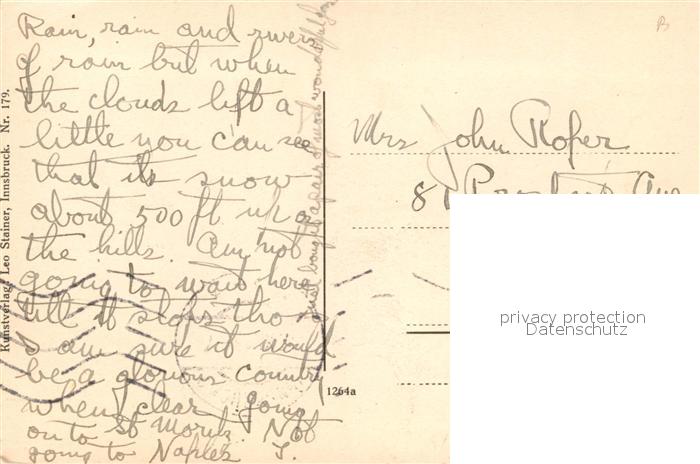 Rain, rain and rivers
of rain but when
the clouds lift a
little you can see
that its snow
about 500 ft up on
the hills. Am not
going to wait here
till it stops tho
I am sure it would
be a glorious country
when clear. Going
on to St Moritz. Not
going to Naples. J.
a pair of most wonderful
Kunstverlag Leo Stainer, Innsbruck. Nr. 179.
1264a
Mrs John Roper
81 Ave
privacy protection
Datenschutz